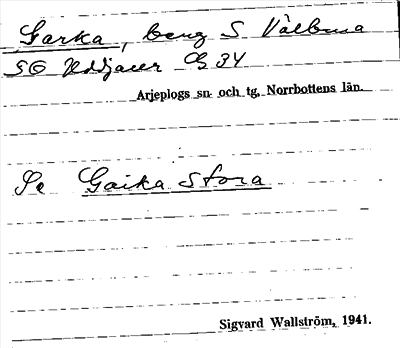 Garka, berg S Vålbma
SO Uddjaur Gg 34
Arjeplogs sn och tg, Norrbottens län.
Se Gaika Stora
Sigvard Wallström, 1941.